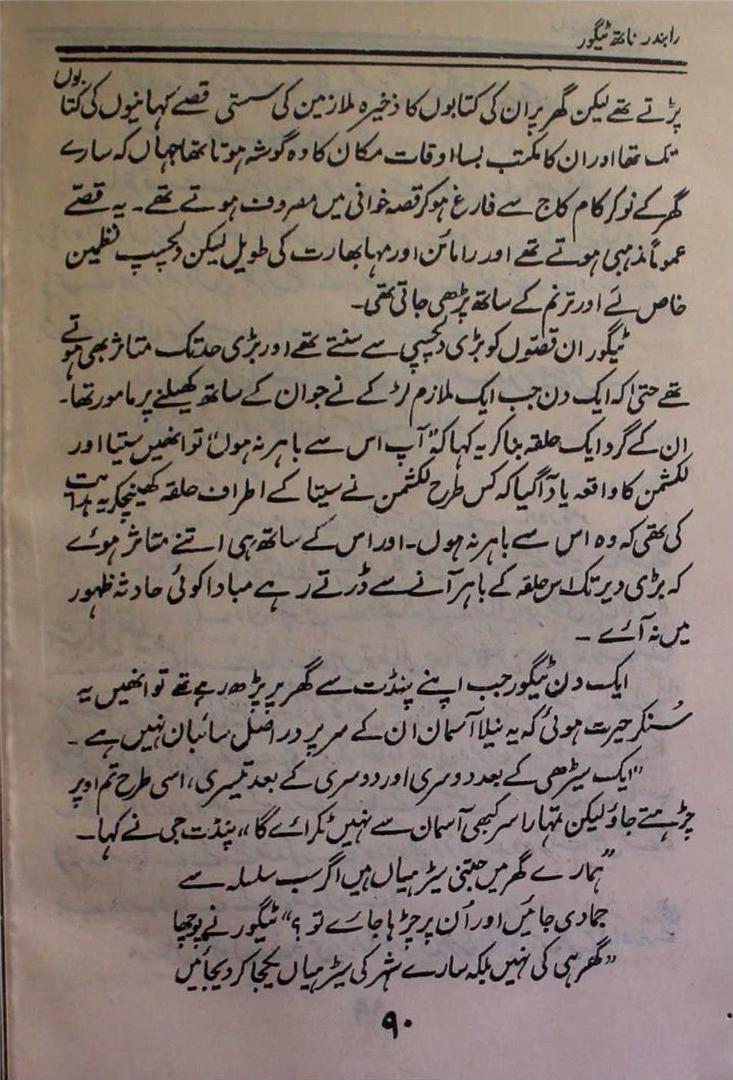 رابندر ناتھ ٹیگور
پڑتے تھے لیکن گھر پر ان کی کتابوں کا ذخیرہ ملازمین کی سستی قصے کہانیوں کی کتابوں
تک تھا اور ان کا مکتب بسا اوقات مکان کا وہ گوشہ ہوتا تھا جہاں کہ سارے
گھر کے نوکر کام کاج سے فارغ ہوکر قصہ خوانی میں مصروف ہوتے تھے۔ یہ قصے
عموماً مذہبی ہوتے تھے اور رامائن اور مہابھارت کی طویل لیکن دلچسپ نظمیں
خاص لَے اور ترنم کے ساتھ پڑھی جاتی تھی۔
ٹیگور ان قصّوں کو بڑی دلچسپی سے سنتے تھے اور بڑی حد تک متاثر بھی ہوتے
تھے حتیٰ کہ ایک دن جب ایک ملازم لڑکے نے جو ان کے ساتھ کھیلنے پر مامور تھا۔
ان کے گرد ایک حلقہ بنا کر یہ کہا کہ "آپ اس سے باہر نہ ہوں" تو انھیں سیتا اور
لکشمن کا واقعہ یاد آگیا کہ کس طرح لکشمن نے سیتا کے اطراف حلقہ کھینچکر یہ ہدایت
کی تھی کہ وہ اس سے باہر نہ ہوں۔ اور اس کے ساتھ ہی اتنے متاثر ہوئے
کہ بڑی دیر تک اس حلقہ کے باہر آنے سے ڈرتے رہے مبادا کوئی حادثہ ظہور
میں نہ آئے ۔
ایک دن ٹیگور جب اپنے پنڈت سے گھر پر پڑھ رہے تھے تو انھیں یہ
سُنکر حیرت ہوئی کہ یہ نیلا آسمان ان کے سر پر دراصل سائبان نہیں ہے ۔
"ایک سیڑھی کے بعد دوسری اور دوسری کے بعد تیسری، اسی طرح تم اوپر
چڑھتے جاؤ لیکن تمہارا سر کبھی آسمان سے نہیں ٹکرائے گا" پنڈت جی نے کہا۔
"ہمارے گھر میں جتنی سیڑھیاں ہیں اگر سب سلسلہ سے
جمادی جائیں اور اُن پر چڑھا جائے تو ؟" ٹیگور نے پوچھا
"گھر ہی کی نہیں بلکہ سارے شہر کی سیڑھیاں یکجا کردیجائیں
۹۰